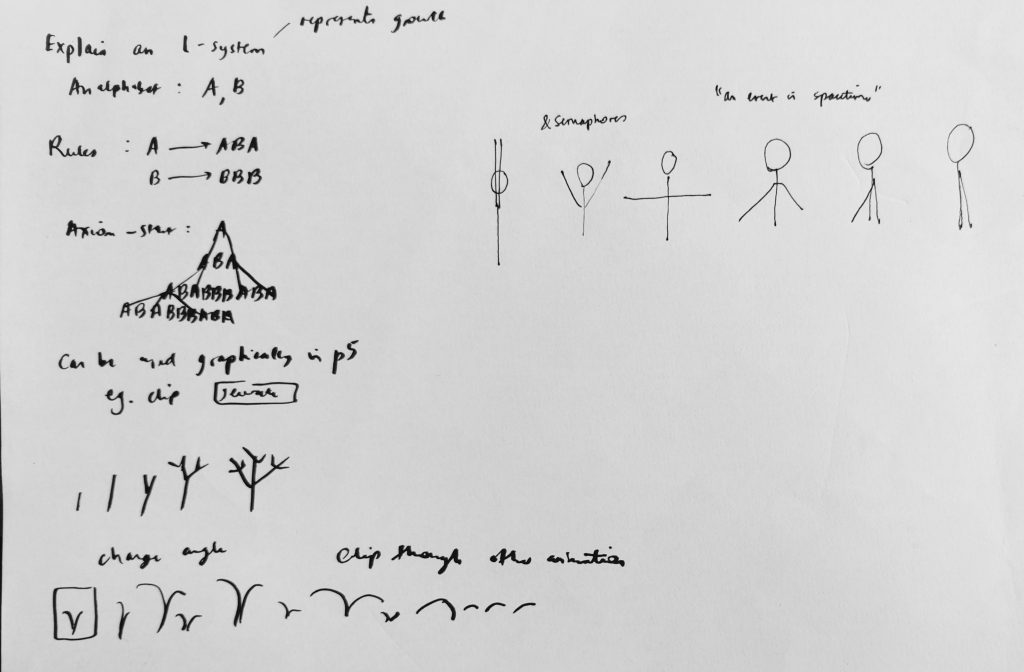 represents growth
Explain an L-system
An alphabet : A, B
Rules : A → ABA
B → BBB
Axiom - start : A
ABA
ABABBBABA
ABABBBABA
Can be used graphically in p5
eg. clip
change angle
clip through other animation
& semaphores
"an event is